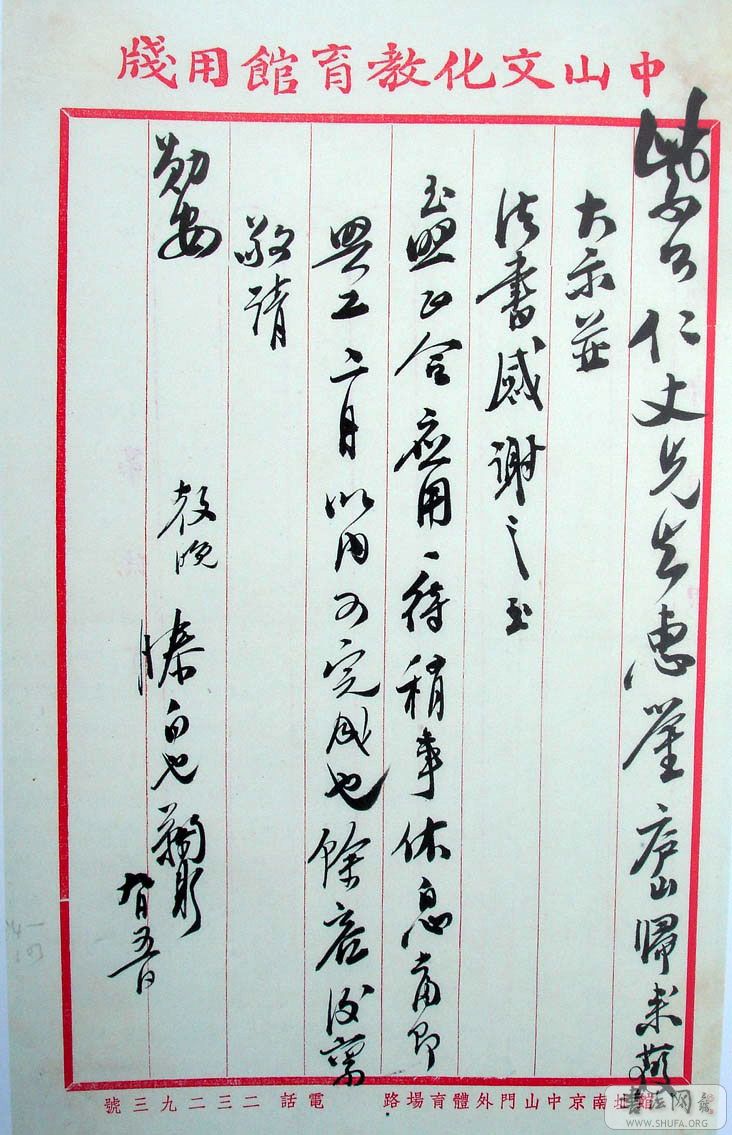 中山文化教育館用牋
紫公仁丈先生惠鑒庐山歸来
大示並
法書感謝之至
玉照正合應用、待稍事休息當即
工二月以内可完成也餘容後稟
敬請
勛安
教晚 滕白也鞠躬
九月五日
館址南京中山門外體育場路 電話二三二九三號
書法网
WWW.SHUFA.ORG